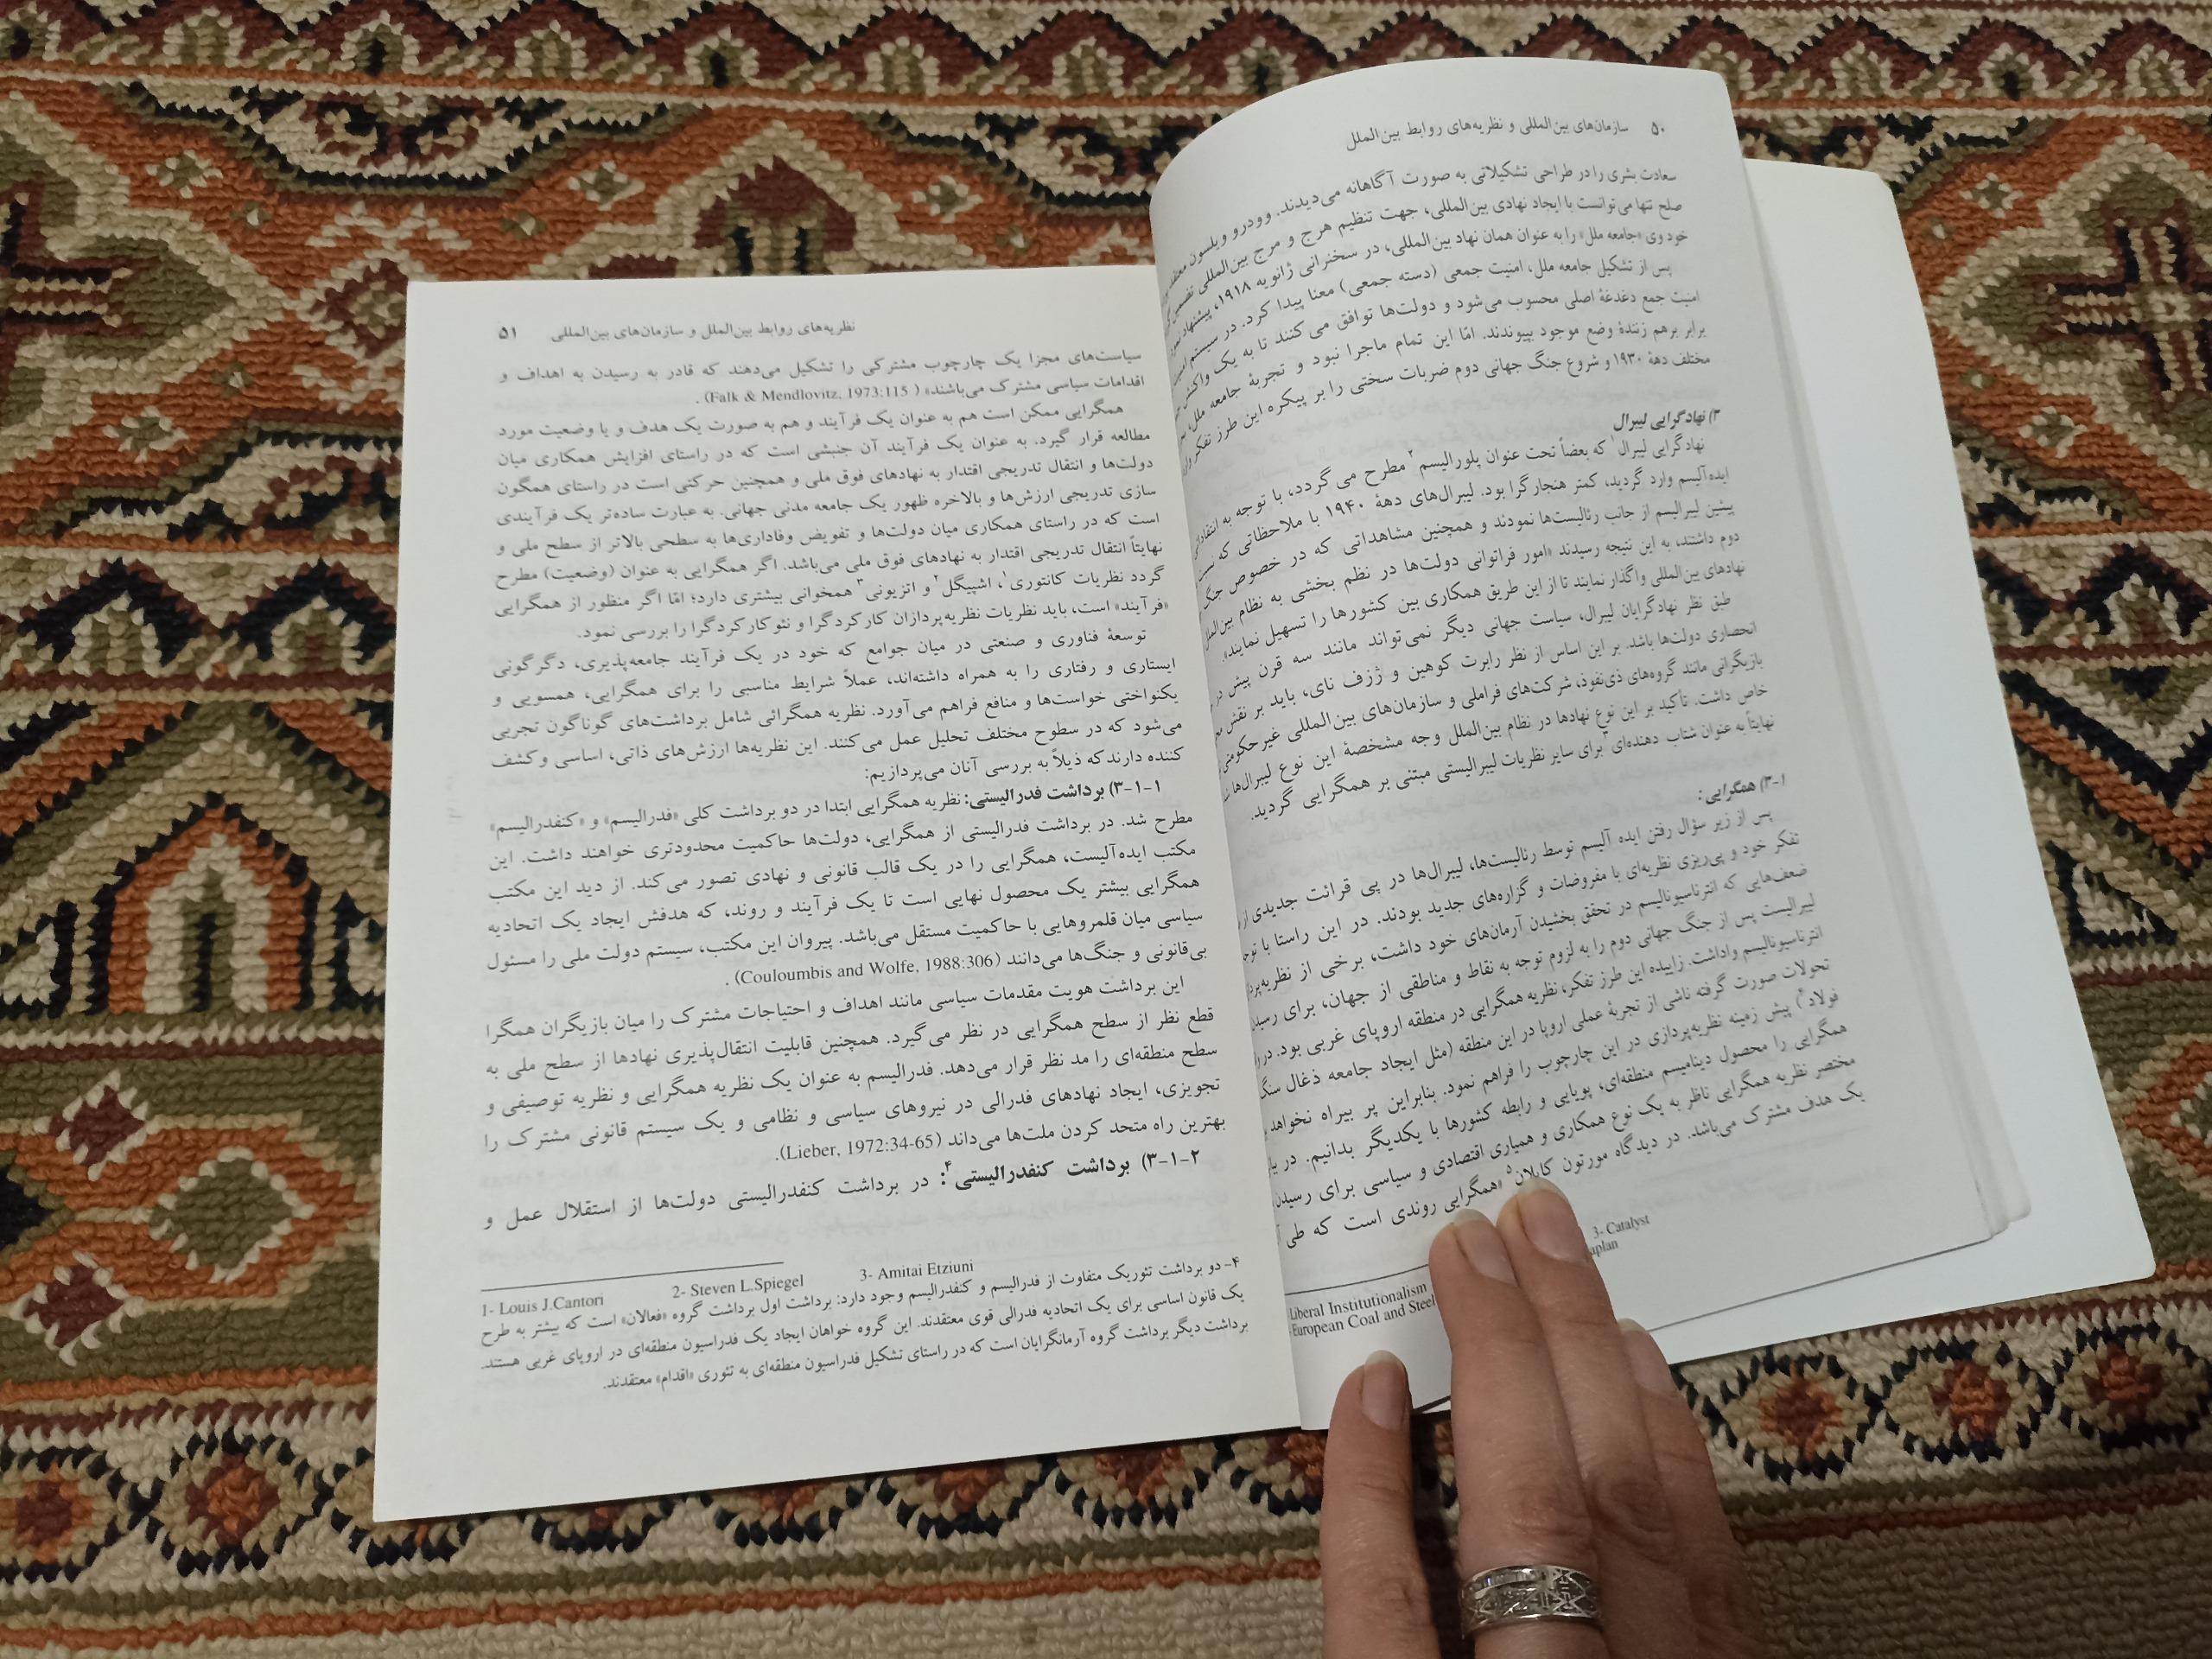 ۵۰ سازمان‌های بین‌المللی و نظریه‌های روابط بین‌الملل
سعادت بشری را در طراحی تشکیلاتی به صورت آگاهانه می‌دیدند. وودرو ویلسون معتقد بود
صلح تنها می‌توانست با ایجاد نهادی بین‌المللی، جهت تنظیم هرج و مرج بین‌المللی تضمین
خود وی «جامعه ملل» را به عنوان همان نهاد بین‌المللی، در سخنرانی ژانویه ۱۹۱۸، پیشنهاد نمود
پس از تشکیل جامعه ملل، امنیت جمعی (دسته جمعی) معنا پیدا کرد. در سیستم امنیت
امنیت جمع دغدغهٔ اصلی محسوب می‌شود و دولت‌ها توافق می‌کنند تا به یک واکنش
برابر برهم زنندهٔ وضع موجود بپیوندند. امّا این تمام ماجرا نبود و تجربهٔ جامعه ملل،
مختلف دههٔ ۱۹۳۰ و شروع جنگ جهانی دوم ضربات سختی را بر پیکره این طرز تفکر
۳) نهادگرایی لیبرال
نهادگرایی لیبرال۱ که بعضاً تحت عنوان پلورالیسم۲ مطرح می‌گردد، با توجه به انتقاداتی
ایده‌آلیسم وارد گردید، کمتر هنجارگرا بود. لیبرال‌های دههٔ ۱۹۴۰ با ملاحظاتی که
پیشین لیبرالیسم از جانب رئالیست‌ها نمودند و همچنین مشاهداتی که در خصوص جنگ
دوم داشتند، به این نتیجه رسیدند «امور فراتوانی دولت‌ها در نظم بخشی به نظام بین‌الملل
نهادهای بین‌المللی واگذار نمایند تا از این طریق همکاری بین کشورها را تسهیل نمایند».
طبق نظر نهادگرایان لیبرال، سیاست جهانی دیگر نمی‌تواند مانند سه قرن پیش در
انحصاری دولت‌ها باشد. بر این اساس از نظر رابرت کوهین و ژزف نای، باید بر نقش
بازیگرانی مانند گروه‌های ذی‌نفوذ، شرکت‌های فراملی و سازمان‌های بین‌المللی غیرحکومتی
خاص داشت. تأکید بر این نوع نهادها در نظام بین‌الملل وجه مشخصهٔ این نوع لیبرال‌ها
نهایتاً به عنوان شتاب دهنده‌ای۳ برای سایر نظریات لیبرالیستی مبتنی بر همگرایی گردید.
۳-۱) همگرایی:
پس از زیر سؤال رفتن ایده آلیسم توسط رئالیست‌ها، لیبرال‌ها در پی قرائت جدیدی از
تفکر خود و پی‌ریزی نظریه‌ای با مفروضات و گزاره‌های جدید بودند. در این راستا با
ضعف‌هایی که انترناسیونالیسم در تحقق بخشیدن آرمان‌های خود داشت، برخی از
لیبرالیست پس از جنگ جهانی دوم را به لزوم توجه به نقاط و مناطقی از جهان، برای
انترناسیونالیسم واداشت. زاییده این طرز تفکر، نظریه همگرایی در منطقه اروپای غربی بود.
تحولات صورت گرفته ناشی از تجربهٔ عملی اروپا در این منطقه (مثل ایجاد جامعه ذغال سنگ
فولاد۴) پیش زمینه نظریه‌پردازی در این چارچوب را فراهم نمود. بنابراین پر بیراه نخواهد
همگرایی را محصول دینامیسم منطقه‌ای، پویایی و رابطه کشورها با یکدیگر بدانیم. در
مختصر نظریه همگرایی ناظر به یک نوع همکاری و همیاری اقتصادی و سیاسی برای رسیدن
یک هدف مشترک می‌باشد. در دیدگاه مورتون کاپلان۵ «همگرایی روندی است که طی
Liberal Institutionalism 3- Catalyst
European Coal and Steel
نظریه‌های روابط بین‌الملل و سازمان‌های بین‌المللی ۵۱
سیاست‌های مجزا یک چارچوب مشترکی را تشکیل می‌دهند که قادر به رسیدن به اهداف و
اقدامات سیاسی مشترک می‌باشند» (Falk & Mendlovitz, 1973:115).
همگرایی ممکن است هم به عنوان یک فرآیند و هم به صورت یک هدف و یا وضعیت مورد
مطالعه قرار گیرد. به عنوان یک فرآیند آن جنبشی است که در راستای افزایش همکاری میان
دولت‌ها و انتقال تدریجی اقتدار به نهادهای فوق ملی و همچنین حرکتی است در راستای همگون
سازی تدریجی ارزش‌ها و بالاخره ظهور یک جامعه مدنی جهانی. به عبارت ساده‌تر یک فرآیندی
است که در راستای همکاری میان دولت‌ها و تفویض وفاداری‌ها به سطحی بالاتر از سطح ملی و
نهایتاً انتقال تدریجی اقتدار به نهادهای فوق ملی می‌باشد. اگر همگرایی به عنوان (وضعیت) مطرح
گردد نظریات کانتوری۱، اشپیگل۲ و اتزیونی۳ همخوانی بیشتری دارد؛ امّا اگر منظور از همگرایی
«فرآیند» است، باید نظریات نظریه‌پردازان کارکردگرا و نئوکارکردگرا را بررسی نمود.
توسعهٔ فناوری و صنعتی در میان جوامع که خود در یک فرآیند جامعه‌پذیری، دگرگونی
ایستاری و رفتاری را به همراه داشته‌اند، عملاً شرایط مناسبی را برای همگرایی، همسویی و
یکنواختی خواست‌ها و منافع فراهم می‌آورد. نظریه همگرائی شامل برداشت‌های گوناگون تجربی
می‌شود که در سطوح مختلف تحلیل عمل می‌کنند. این نظریه‌ها ارزش‌های ذاتی، اساسی و کشف
کننده دارند که ذیلاً به بررسی آنان می‌پردازیم:
۳-۱-۱) برداشت فدرالیستی: نظریه همگرایی ابتدا در دو برداشت کلی «فدرالیسم» و «کنفدرالیسم»
مطرح شد. در برداشت فدرالیستی از همگرایی، دولت‌ها حاکمیت محدودتری خواهند داشت. این
مکتب ایده‌آلیست، همگرایی را در یک قالب قانونی و نهادی تصور می‌کند. از دید این مکتب
همگرایی بیشتر یک محصول نهایی است تا یک فرآیند و روند، که هدفش ایجاد یک اتحادیه
سیاسی میان قلمروهایی با حاکمیت مستقل می‌باشد. پیروان این مکتب، سیستم دولت ملی را مسئول
بی‌قانونی و جنگ‌ها می‌دانند (Couloumbis and Wolfe, 1988:306).
این برداشت هویت مقدمات سیاسی مانند اهداف و احتیاجات مشترک را میان بازیگران همگرا
قطع نظر از سطح همگرایی در نظر می‌گیرد. همچنین قابلیت انتقال‌پذیری نهادها از سطح ملی به
سطح منطقه‌ای را مد نظر قرار می‌دهد. فدرالیسم به عنوان یک نظریه همگرایی و نظریه توصیفی و
تجویزی، ایجاد نهادهای فدرالی در نیروهای سیاسی و نظامی و یک سیستم قانونی مشترک را
بهترین راه متحد کردن ملت‌ها می‌داند (Lieber, 1972:34-65).
۳-۱-۲) برداشت کنفدرالیستی۴: در برداشت کنفدرالیستی دولت‌ها از استقلال عمل و
1- Louis J.Cantori 2- Steven L.Spiegel 3- Amitai Etziuni
۴- دو برداشت تئوریک متفاوت از فدرالیسم و کنفدرالیسم وجود دارد: برداشت اول برداشت گروه «فعالان» است که بیشتر به طرح
یک قانون اساسی برای یک اتحادیه فدرالی قوی معتقدند. این گروه خواهان ایجاد یک فدراسیون منطقه‌ای در اروپای غربی هستند.
برداشت دیگر برداشت گروه آرمانگرایان است که در راستای تشکیل فدراسیون منطقه‌ای به تئوری «اقدام» معتقدند.